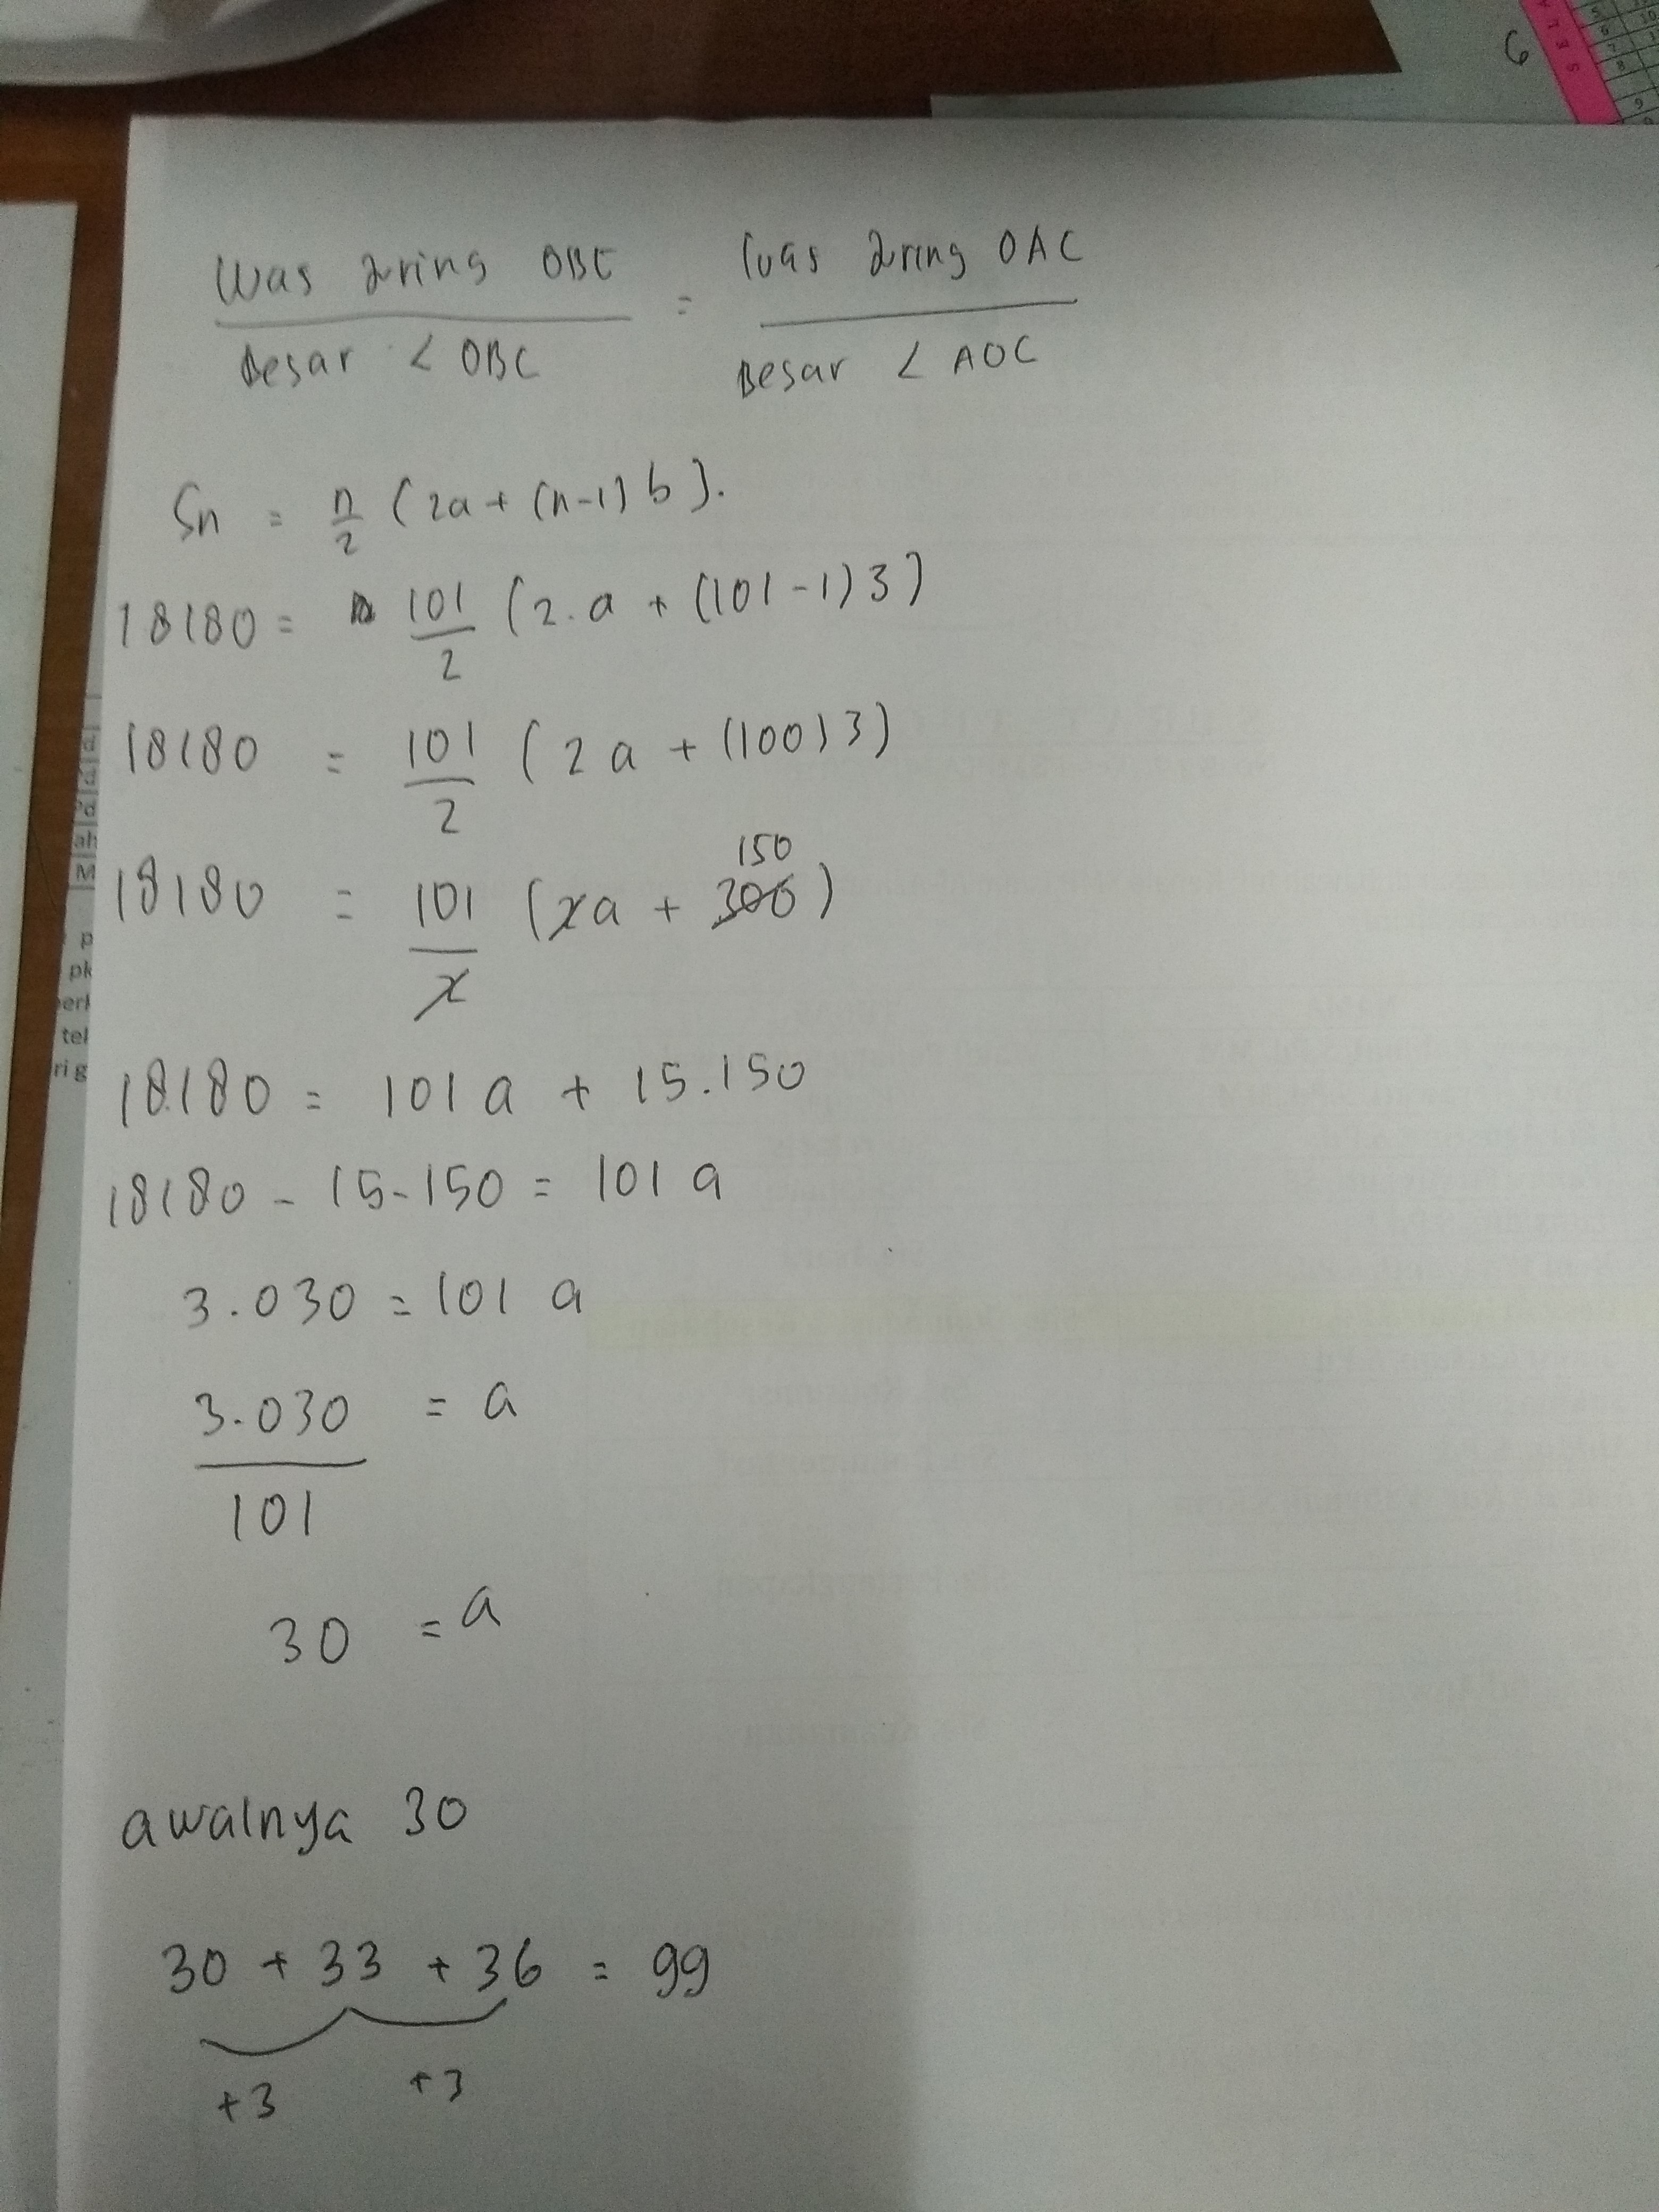 luas juring OBC = luas juring OAC
Besar < OBC Besar < AOC
Sn = n/2 (2a + (n-1) b).
18180 = 101/2 (2.a + (101-1)3)
18180 = 101/2 (2a + (100)3)
150
18180 = 101/2 (2a + 300)
18.180 = 101 a + 15.150
18180 - 15-150 = 101 a
3.030 = 101 a
3.030/101 = a
30 = a
awalnya 30
30 + 33 + 36 = 99
+3 +3